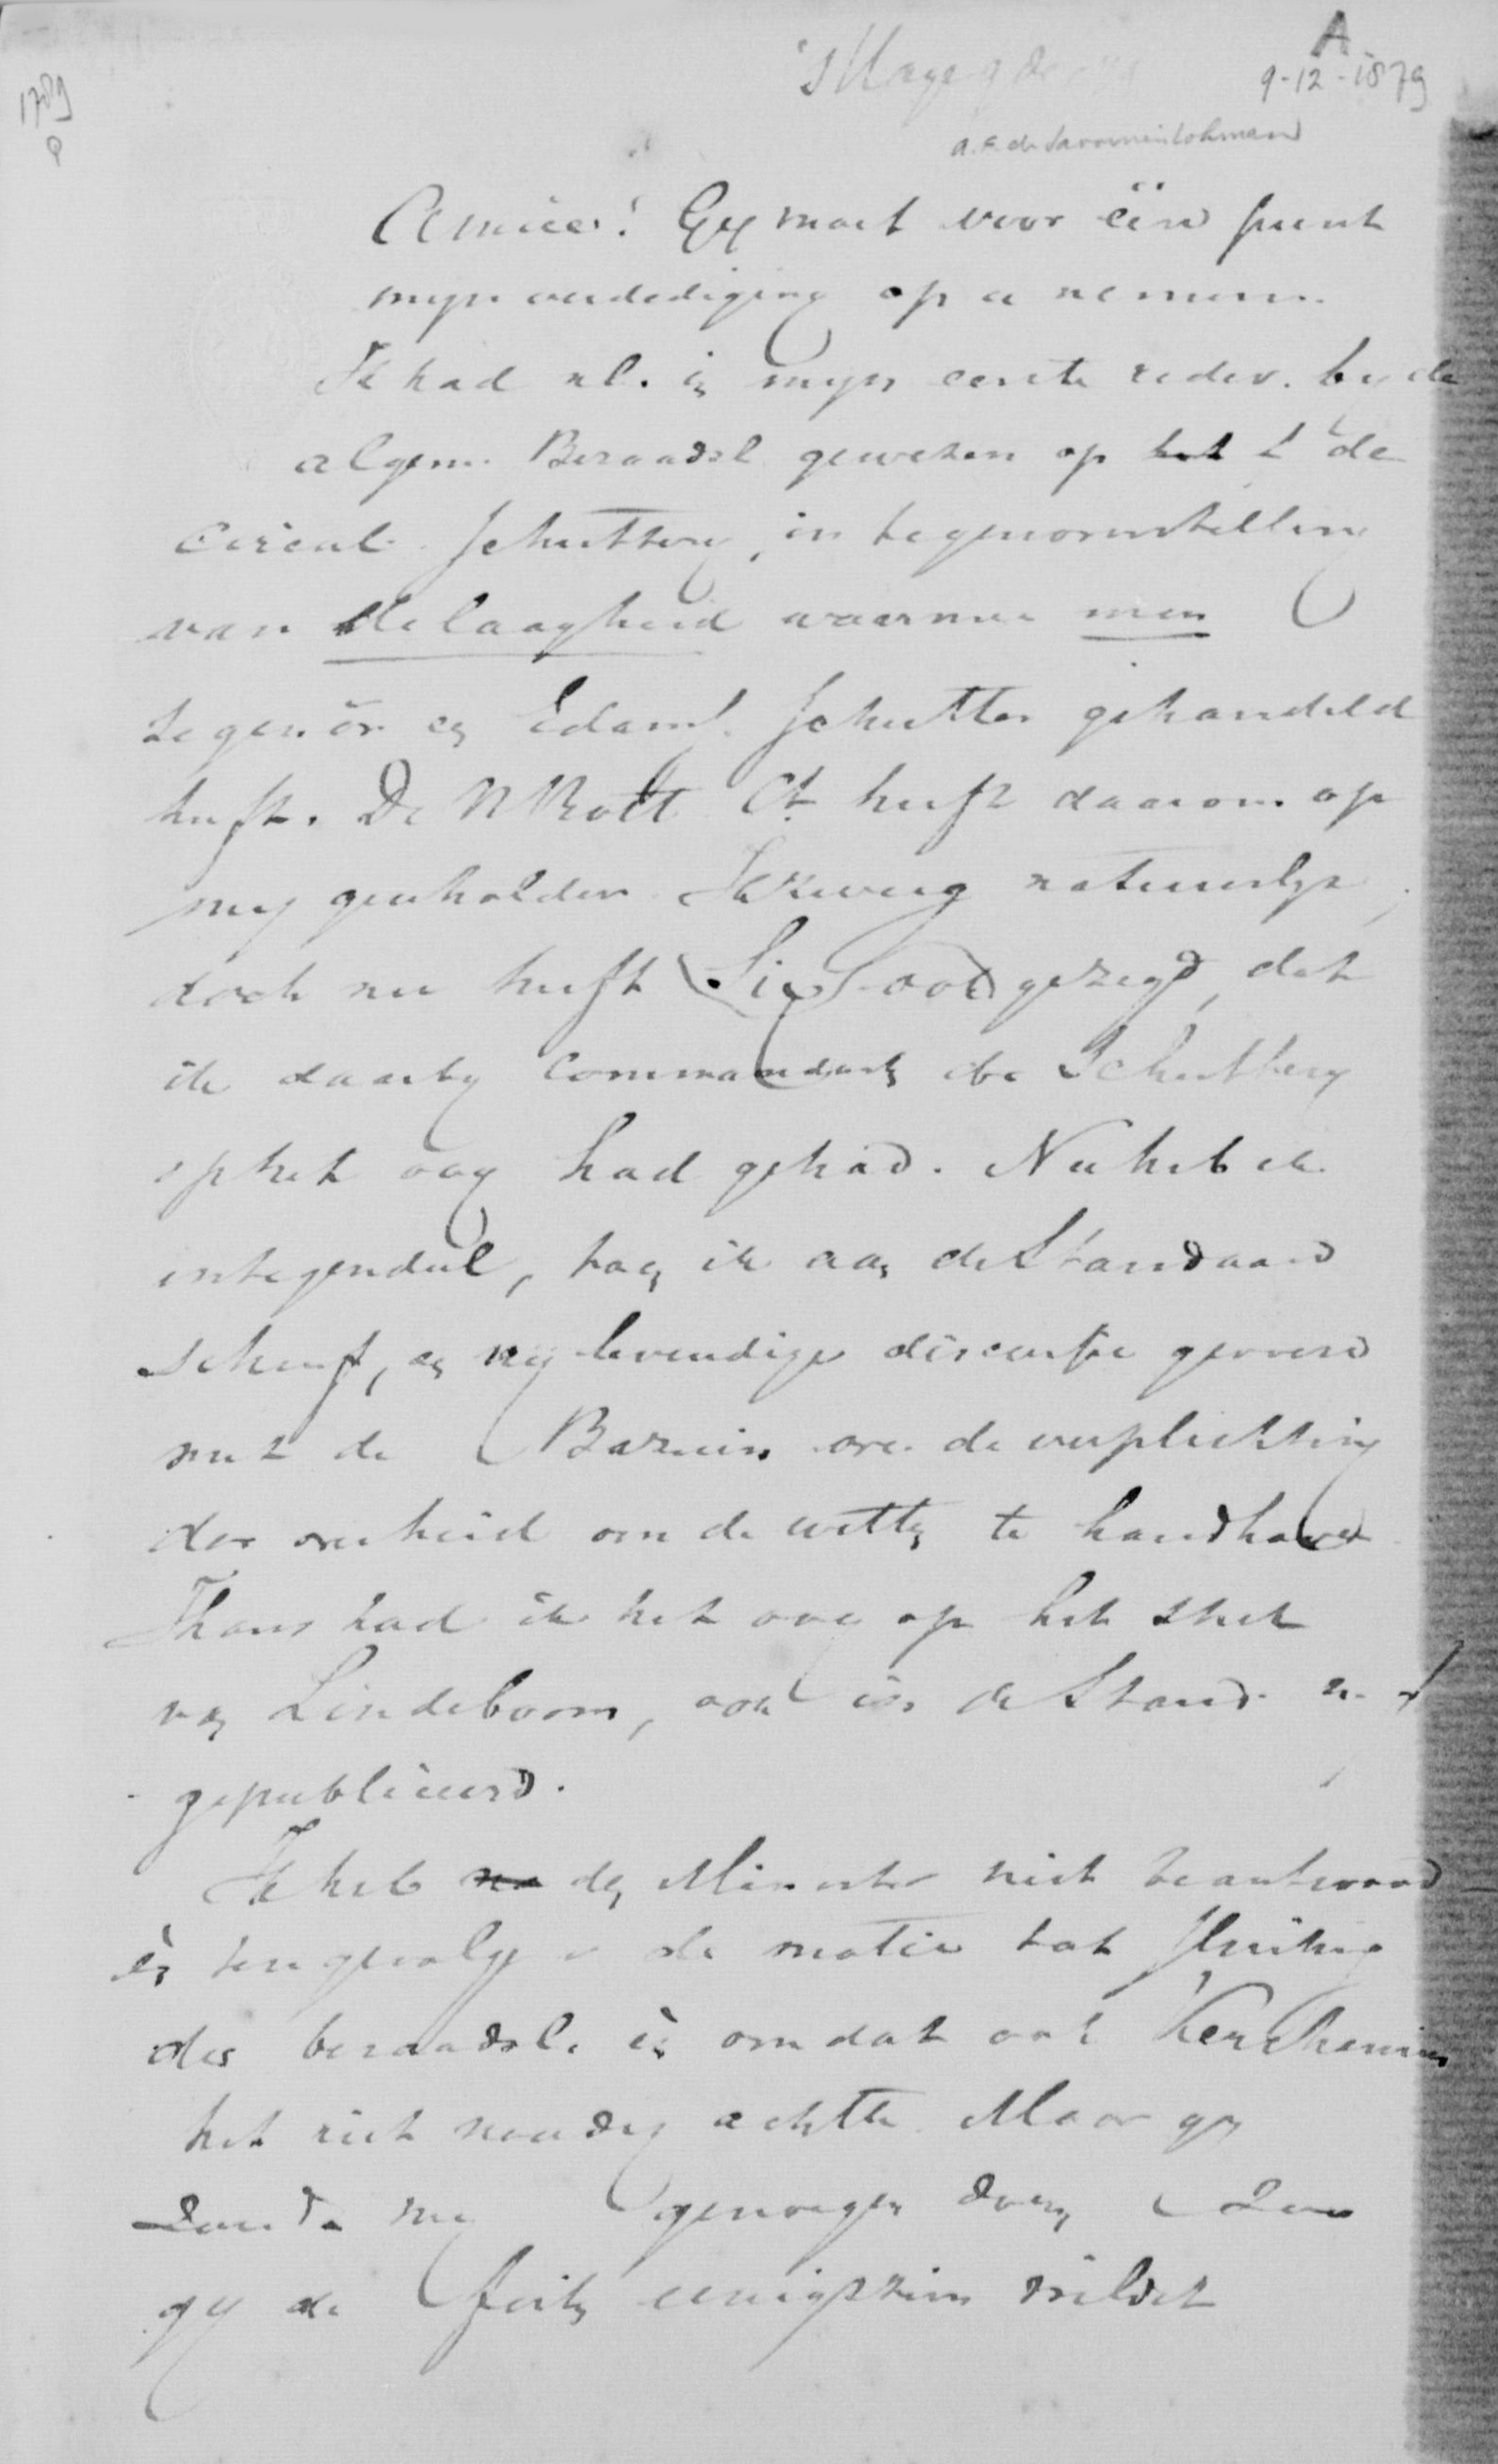 A
's Hage 9 Dec
9-12-1879
1789
a.F. de Savornin Lohman
Amice! Gij moet voor één punt
mijn verdediging op u nemen.
Ik had nl. in mijn eerste redev. bij de
algem. Beraadsl gewezen op de
circul. Schuttery, in tegenoverstelling
van de laagheid waarmee men
tegenôr en Edams. Schutter gehandeld
heeft. De N Rott Ct heeft daarom op
mij gescholden. Ik zweeg natuurlijk,
doch nu heeft Six ook gezegd, dat
ik daarby commandant der Schuttery
op het oog had gehad. Nu heb ik
integendeel, toen ik aan de Standaard
schreef, een vrij levendige discussie gevoerd
met de Bazuin over de verplichting
der overheid om de wetten te handhaven
Thans had ik het oog op het stuk
van Lindeboom, ook in de Stand.
gepubliceerd.
Ik heb den Minister niet beantwoord
èn tengevolge v de motie tot sluiting
des beraadsl. èn omdat ook Keuchenius
het niet noodig achtte. Maar gij
zoudt mij genoegen doen, zoo
gij de feiten eenigszins wildet